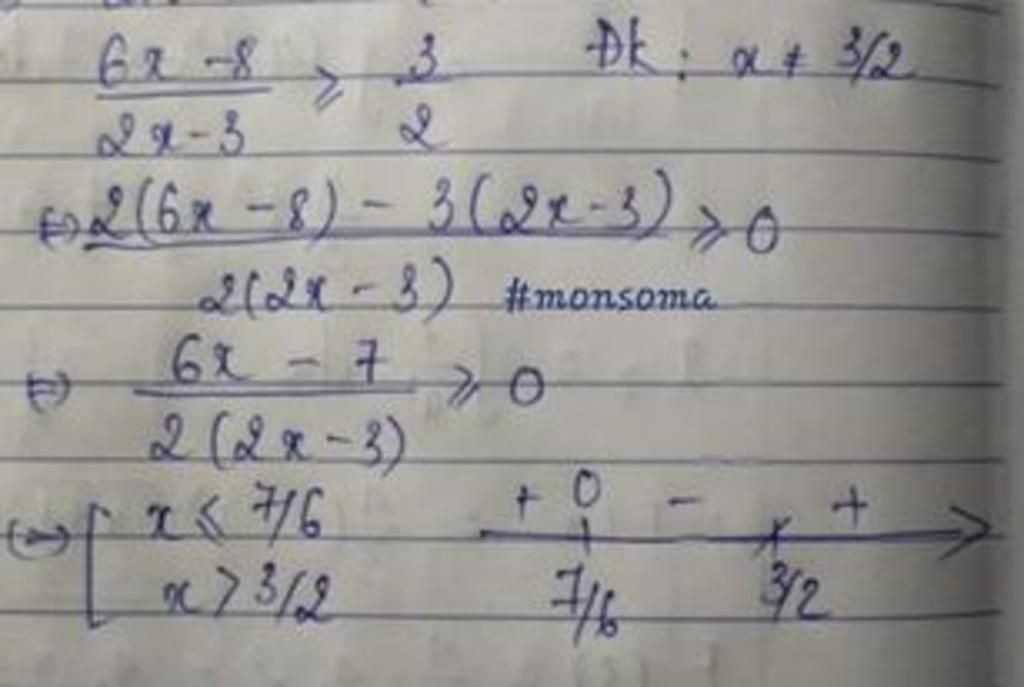 6x - 8 / 2x - 3 ⩾ 3 / 2 Đk : x ≠ 3/2
⇔ 2(6x - 8) - 3(2x - 3) / 2(2x - 3) ⩾ 0
#monsoma
⇔ 6x - 7 / 2(2x - 3) ⩾ 0
⇔ [ x ⩽ 7/6
x > 3/2
+ 0 - +
7/6 3/2